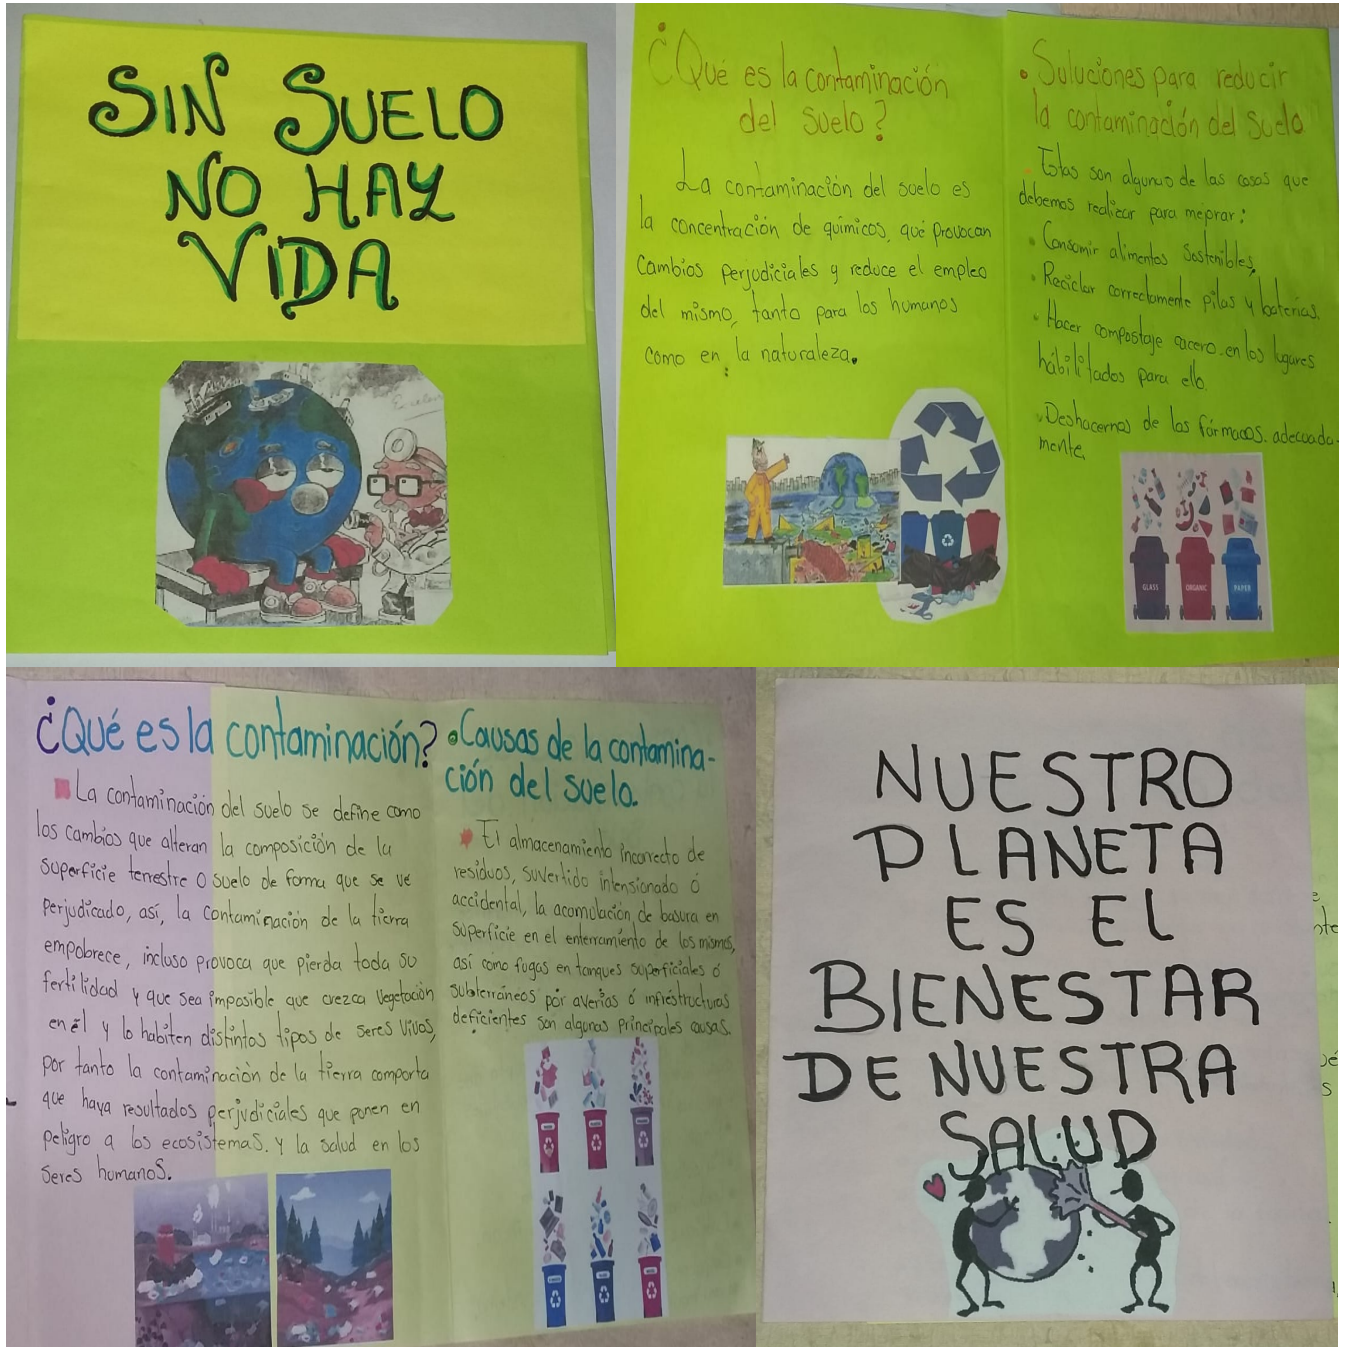 SIN SUELO
NO HAY
VIDA
¿Qué es la contaminación
del suelo?
La contaminación del suelo es
la concentración de químicos, qué provocan
cambios perjudiciales y reduce el empleo
del mismo, tanto para los humanos
como en la naturaleza.
• Suluciones para reducir
la contaminación del suelo
Estas son algunas de las cosas que
debemos realizar para mejorar:
• Consumir alimentos sostenibles,
• Reciclar correctamente pilas y baterías.
• Hacer compostaje cacero en los lugares
hábilitados para ello.
• Deshacernos de los fármacos. adecuada-
mente.
GLASS
ORGANIC
PAPER
¿Qué es la contaminación?
La contaminación del suelo se define como
los cambios que alteran la composición de la
superficie terrestre o suelo de forma que se ve
perjudicado, así, la contaminación de la tierra
empobrece, incluso provoca que pierda toda su
fertilidad y que sea imposible que crezca vegetación
en él y lo habiten distintos tipos de seres vivos,
por tanto la contaminación de la tierra comporta
que haya resultados perjudiciales que ponen en
peligro a los ecosistemas. y la salud en los
seres humanos.
• Causas de la contamina-
ción del suelo.
El almacenamiento incorrecto de
residuos, suvertido intensionado ó
accidental, la acomulación de basura en
superficie en el enterramiento de los mismos,
así como fugas en tanques superficiales ó
subterráneos por averías ó infrestructuras
deficientes son algunas principales causas.
NUESTRO
PLANETA
ES EL
BIENESTAR
DE NUESTRA
SALUD